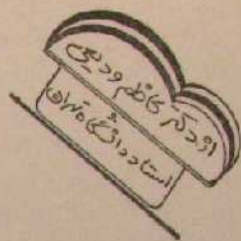 از دکتر کاظم ودیعی
استاد دانشگاه تهران